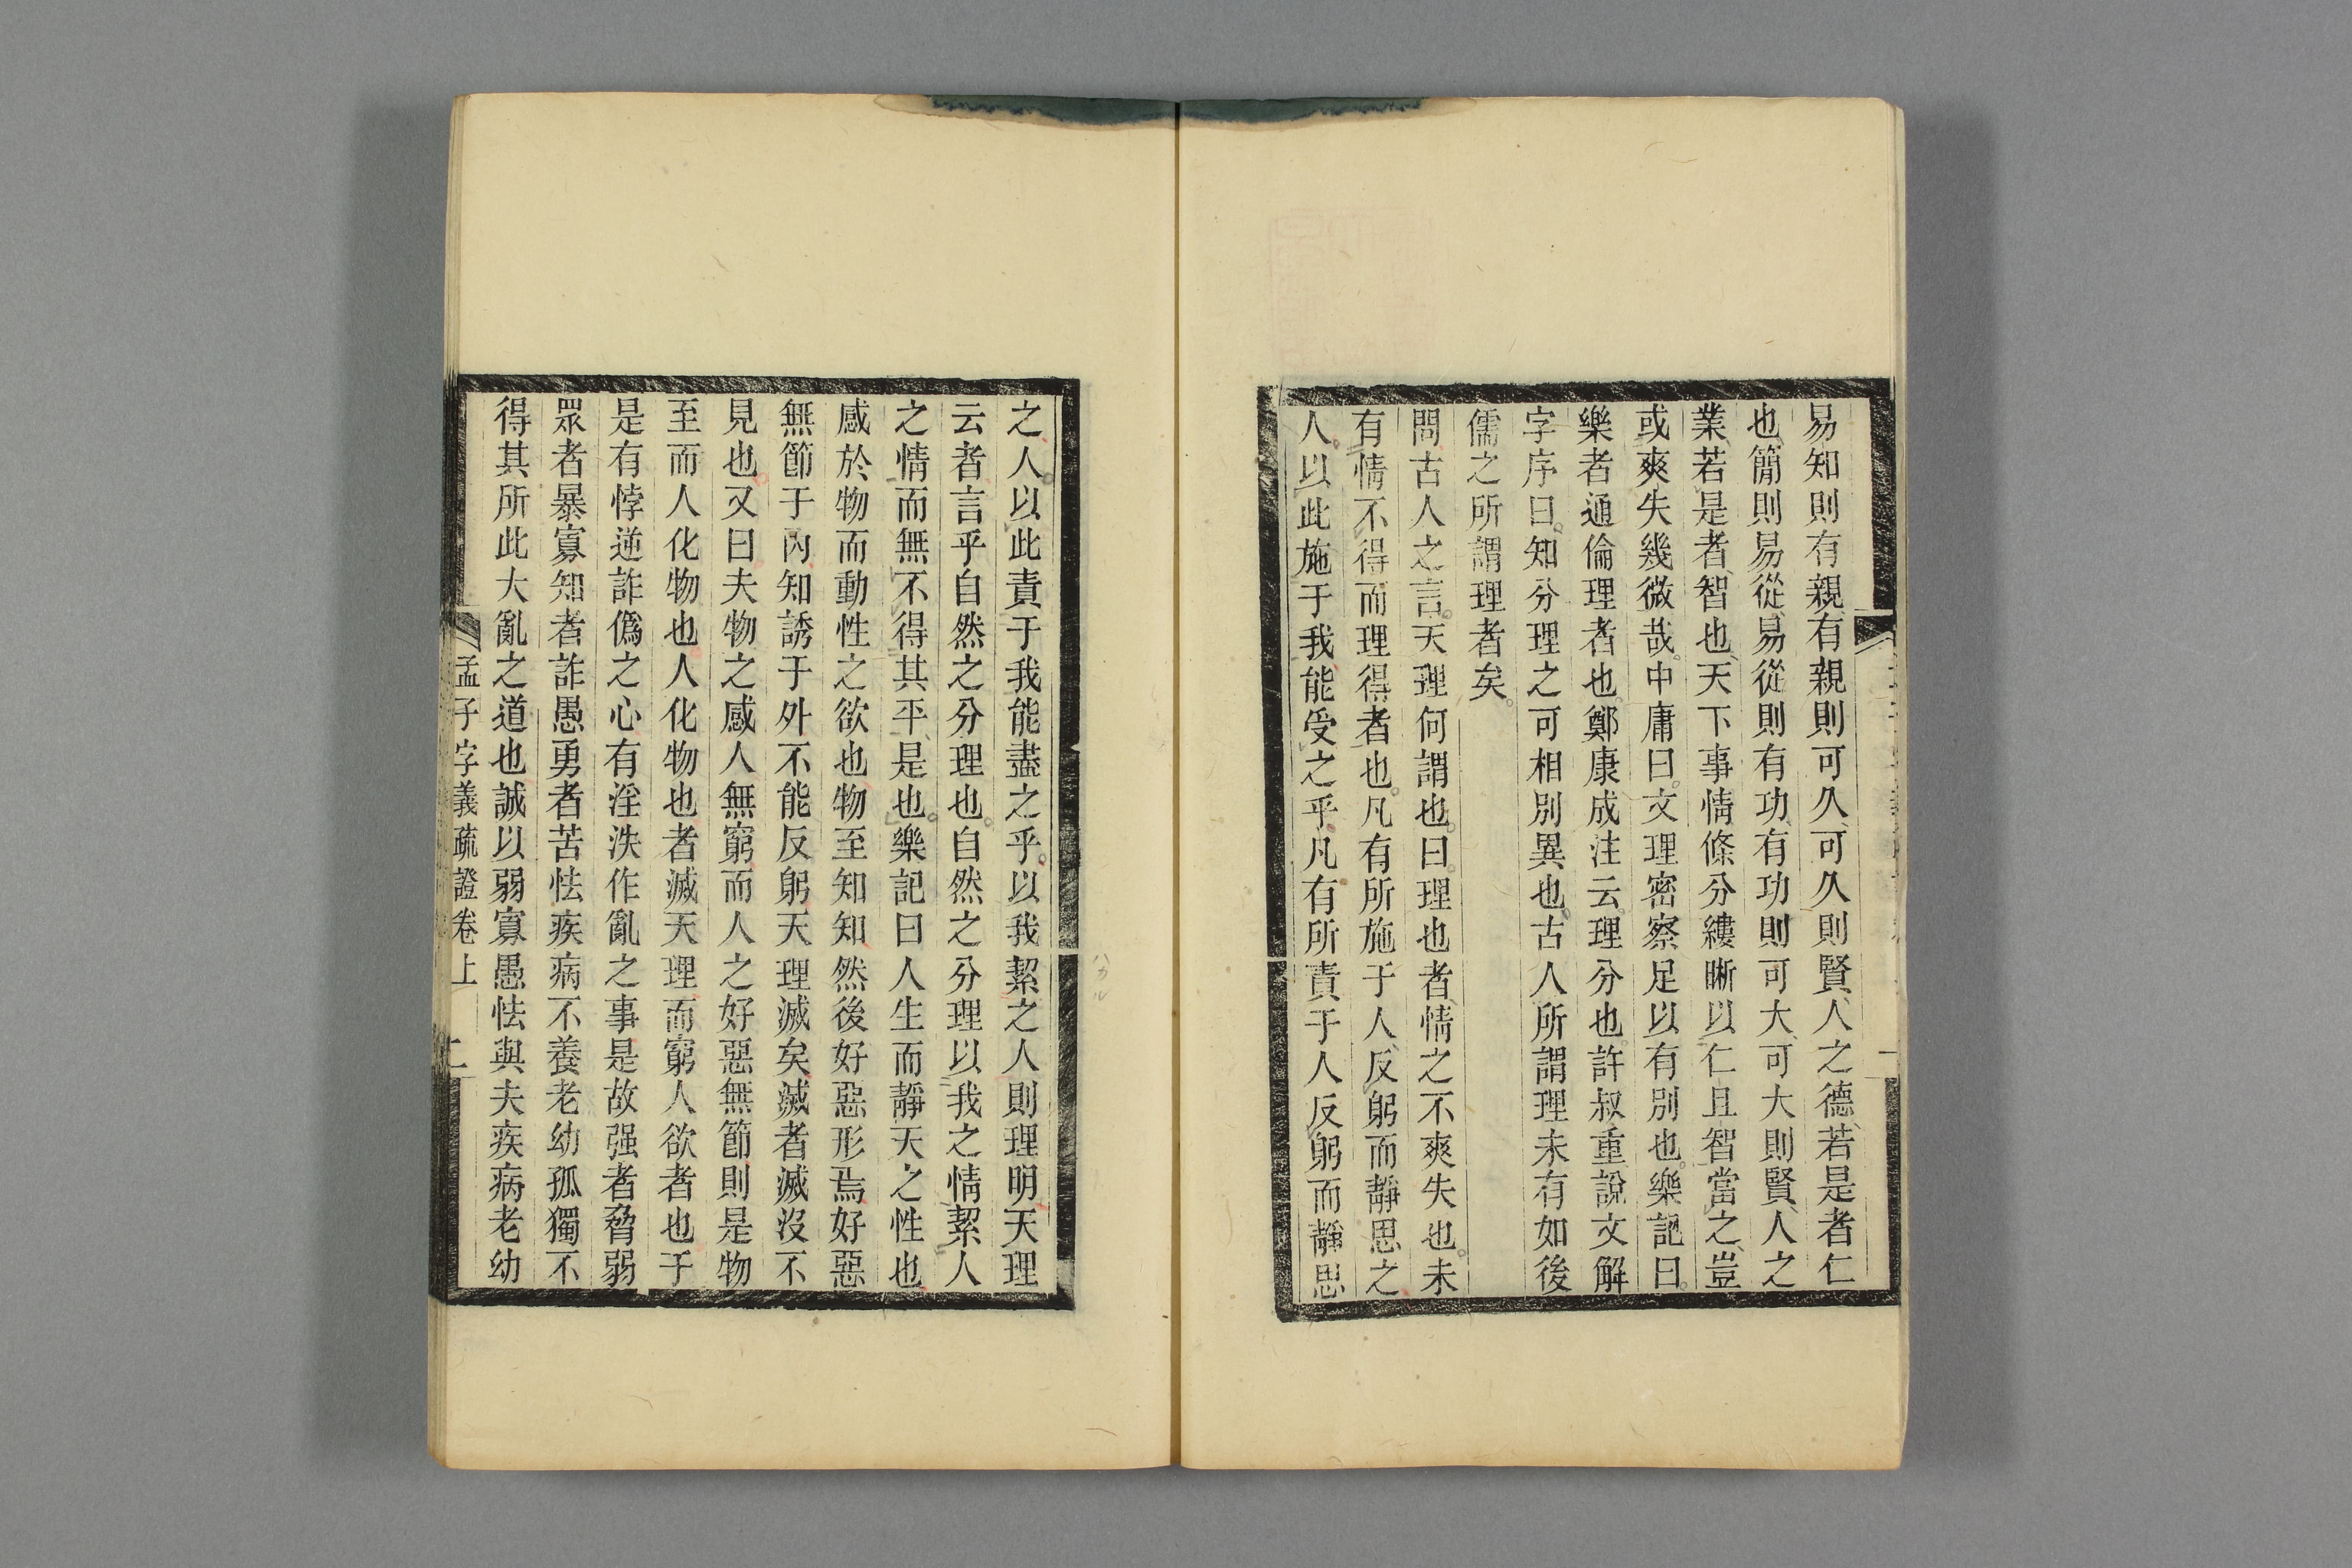 易知則有親有親則可久可久則賢人之德若是者仁
也簡則易從易從則有功有功則可大可大則賢人之
業若是者智也天下事情條分縷晰以仁且智當之豈
或爽失幾微哉中庸曰文理密察足以有別也樂記曰
樂者通倫理者也鄭康成注云理分也許叔重說文解
字序曰知分理之可相別異也古人所謂理未有如後
儒之所謂理者矣
問古人之言天理何謂也曰理也者情之不爽失也未
有情不得而理得者也凡有所施于人反躬而靜思之
人以此施于我能受之乎凡有所責于人反躬而靜思
之人以此責于我能盡之乎以我絜之人則理明天理
云者言乎自然之分理也自然之分理以我之情絜人
之情而無不得其平是也樂記曰人生而靜天之性也
感於物而動性之欲也物至知知然後好惡形焉好惡
無節于內知誘于外不能反躬天理滅矣滅者滅沒不
見也又曰夫物之感人無窮而人之好惡無節則是物
至而人化物也人化物也者滅天理而窮人欲者也于
是有悖逆詐僞之心有淫泆作亂之事是故强者脅弱
眾者暴寡知者詐愚勇者苦怯疾病不養老幼孤獨不
得其所此大亂之道也誠以弱寡愚怯與夫疾病老幼
孟子字義疏證卷上 二
ハカル